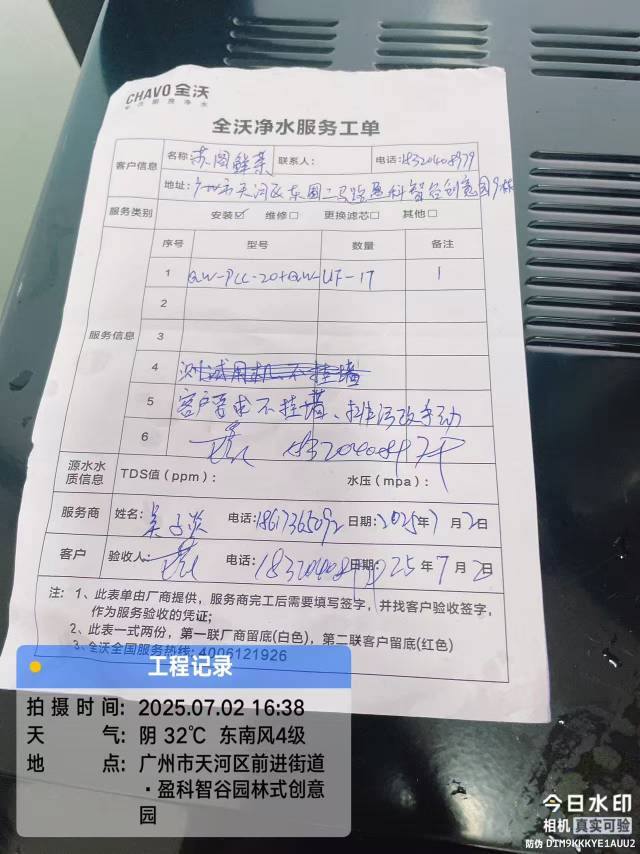 CHAVO 全沃
全沃净水服务工单
客户信息 名称 苏阁鲜茶 联系人： 电话：18320408979
地址：广州市天河区东圃二马路盈科智谷创意园9栋
服务类别 安装☑ 维修□ 更换滤芯□ 其他□
服务信息 序号 型号 数量 备注
1 QW-PLC-20+QW-UF-17 1
2
3
4 测试用机不挂墙
5 客户要求不挂墙、排污改手动
6 18320408979
源水水质信息 TDS值（ppm）： 水压（mpa）：
服务商 姓名： 电话：18617365092 日期：2025年7月2日
客户 验收人： 电话：18320408979 日期：25年7月2日
注：1、此表单由厂商提供，服务商完工后需要填写签字，并找客户验收签字，
作为服务验收的凭证；
2、此表一式两份，第一联厂商留底(白色)，第二联客户留底(红色)
3、全沃全国服务热线：4006121926
工程记录
拍摄时间：2025.07.02 16:38
天气：阴 32℃ 东南风4级
地点：广州市天河区前进街道
·盈科智谷园林式创意
园
今日水印
相机 真实可验
防伪 D1M9KKKYE1AUU2